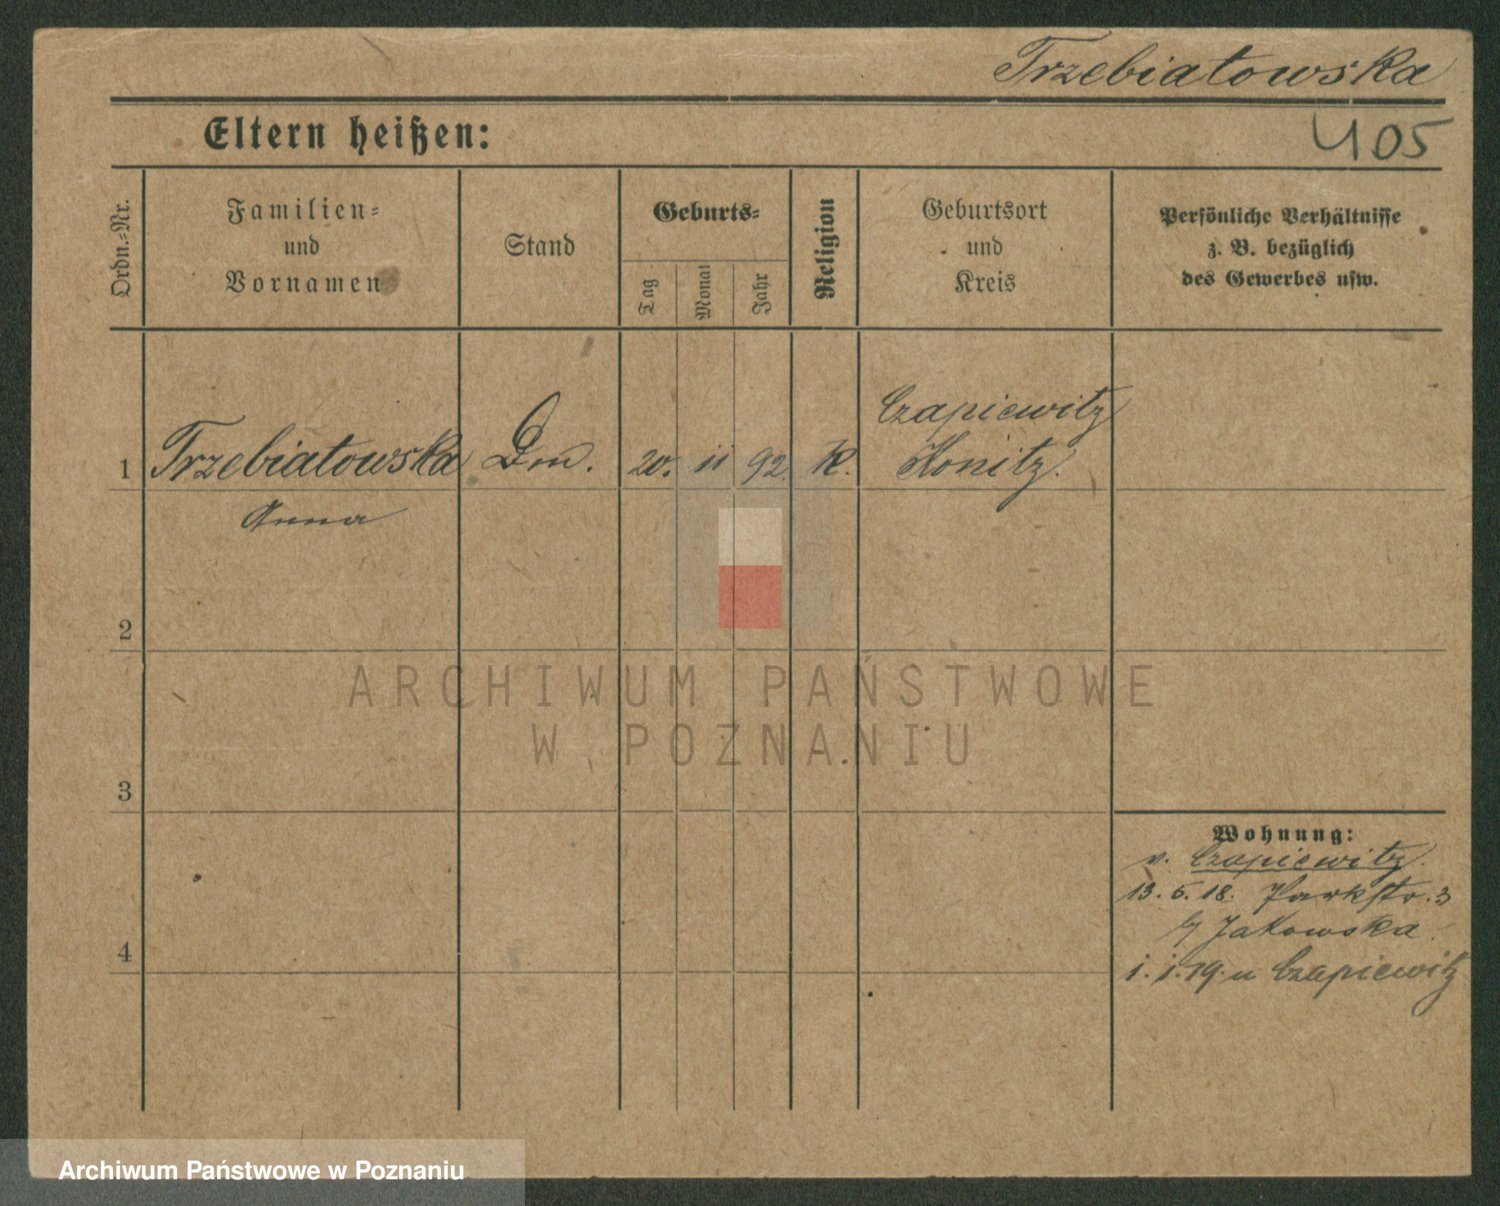 Trzebiatowska
Eltern heißen:
405
Ordn.-Nr.
Familien-
und
Vornamen
Stand
Geburts-
Tag
Monat
Jahr
Religion
Geburtsort
und
Kreis
Persönliche Verhältnisse
z. B. bezüglich
des Gewerbes usw.
Czapiewitz
1 Trzebiatowska Dm. 20. 11 92. K. Konitz.
Anna
2
3
Wohnung:
v. Czapiewitz
13. 5. 18. Parkstr. 3
b/ Jakowska.
4
1. 1. 19. n Czapiewitz
ARCHIWUM PAŃSTWOWE
W POZNANIU
Archiwum Państwowe w Poznaniu